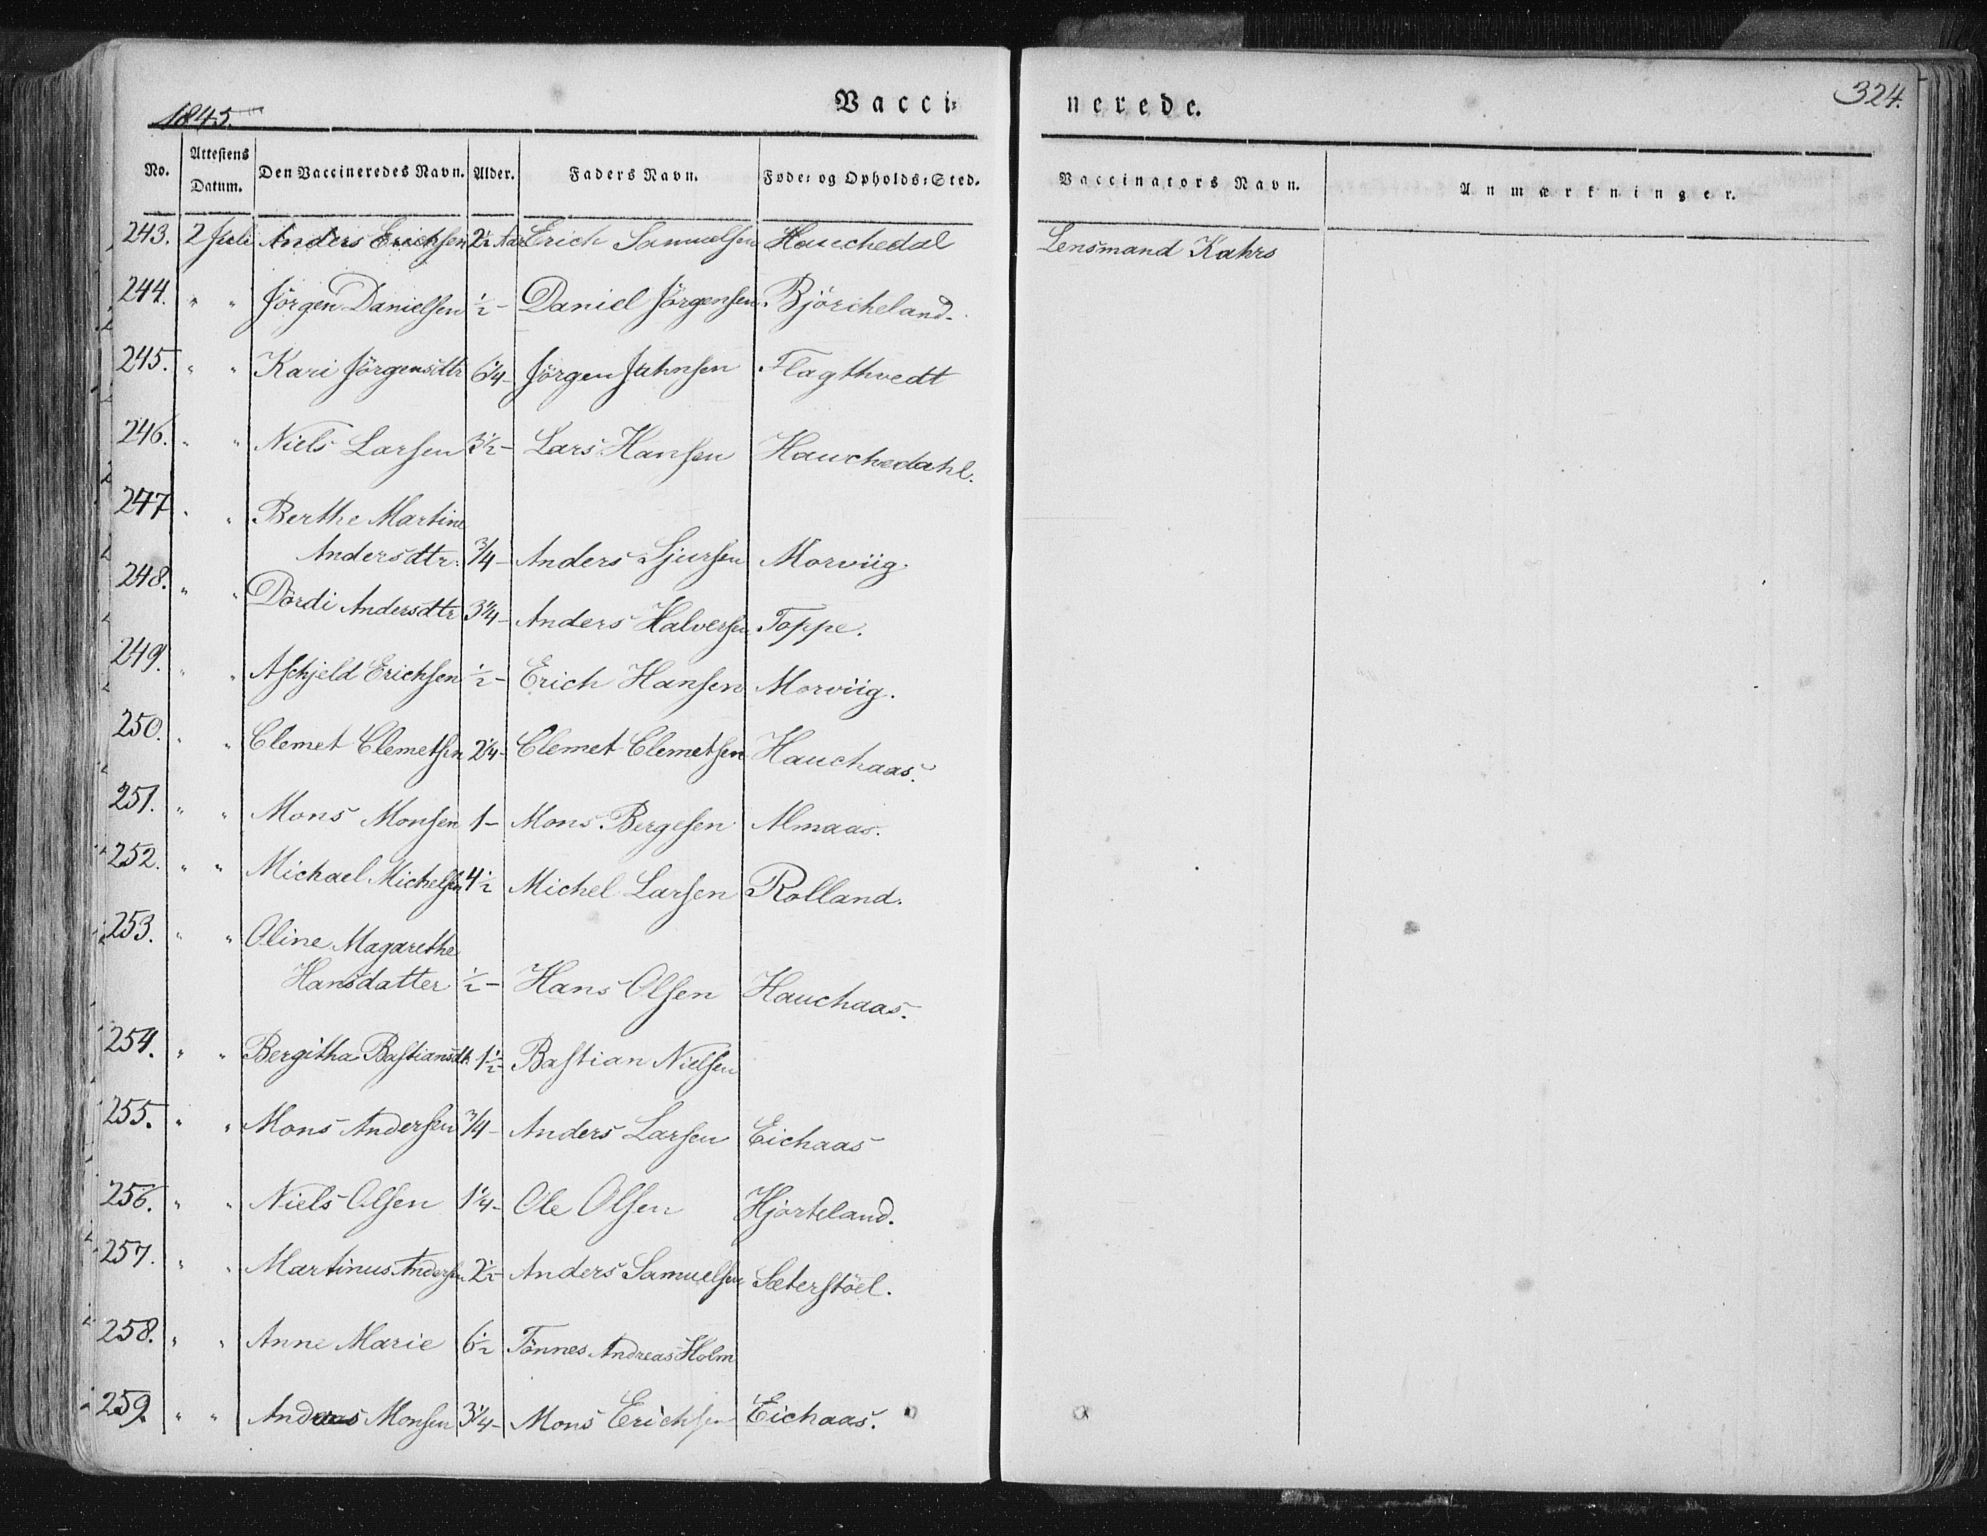 1845.
Vacci-
nerede.
324.
No. Attestens Datum. Den Vaccineredes Navn. Alder. Faders Navn. Føde- og Opholds-Sted. Vaccinators Navn. Anmærkninger.
243. 2 Juli Anders Erichsen 2½ Aar Erich Samuelsen Hauchedal Lensmand Kahrs
244. " " Jörgen Danielsen ½ - Daniel Jörgensen Björcheland.
245. " " Kari Jörgensdtr 6¼ - Jörgen Jahnsen Flagthvedt
246. " " Niels Larsen 3½ - Lars Hansen Hauchedahl.
247 " " Berthe Martine
Andersdtr. ¾ - Anders Sjursen Morviig.
248. " " Dördi Andersdtr 3¼ - Anders Halversen Toppe.
249. " " Aschjeld Erichsen ½ - Erich Hansen Morviig.
250. " " Clemet Clemetsen 2¼ - Clemet Clemetsen Hauchaas.
251. " " Mons Monsen 1 - Mons Bergesen Almaas.
252. " " Michael Michelsen 4½ Michel Larsen Rolland.
253. " " Oline Magarethe
Hansdatter ½ - Hans Olsen Hauchaas.
254. " " Bergitha Bastiansdt. 1½ - Bastian Nielsen
255. " " Mons Andersen ¾ - Anders Larsen Eichaas
256. " " Niels Olsen 1¼ - Ole Olsen Hjorteland.
257. " " Martinus Andersen 2½ - Anders Samuelsen Sæterstöel.
258. " " Anne Marie 6½ Tönnes Andreas Holm
259. " " Andreas Monsen 3¼ - Mons Erichsen Eichaas.